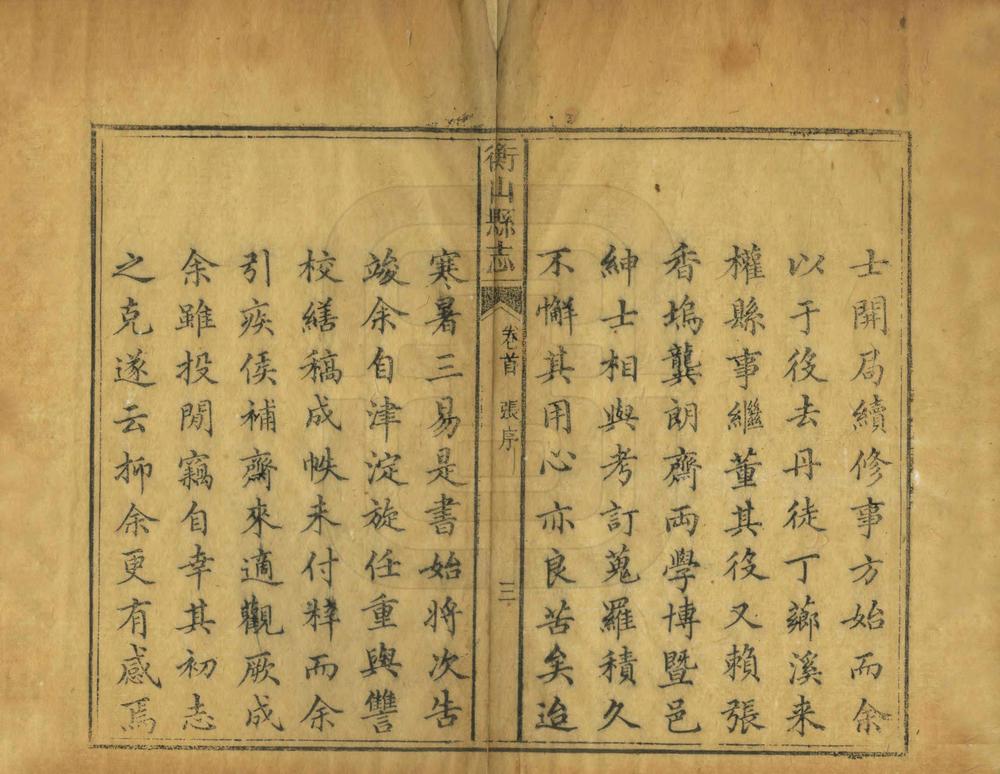 士開局續修事方始而余
以于役去丹徒丁薌溪來
權縣事繼董其役又賴張
香塢龔朗齋両學博暨邑
紳士相與考訂蒐羅積久
不懈其用心亦良苦矣迨
衡山縣志
卷首
張序
三
寒暑三易是書始將次告
竣余自津淀旋任重與讐
校繕稿成帙未付粹而余
引疾侯補齋來適觀厥成
余雖投閒竊自幸其初志
之克遂云抑余更有感焉